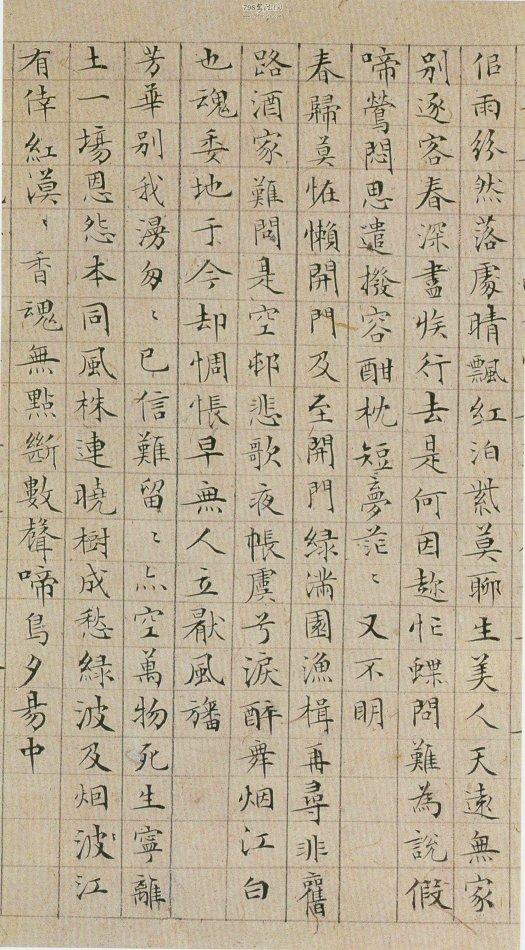 佀雨紛然落處晴飄紅泊紫莫聊生美人天遠無家
别逐客春深盡族行去是何因趂忙蝶問難為說假
啼鶯悶思遣撥容酣枕短夢茫、又不明
春歸莫恠懶開門及至開門緑滿園漁楫再尋非舊
路酒家難問是空邨悲歌夜帳虞兮淚醉舞烟江白
也魂委地于今却惆悵早無人立厭風旛
芳華别我漫匆、已信難留、亦空萬物死生寧離
土一場恩怨本同風株連曉樹成愁緑波及烟波江
有倖紅漠、香魂無點斷數聲啼鳥夕昜中